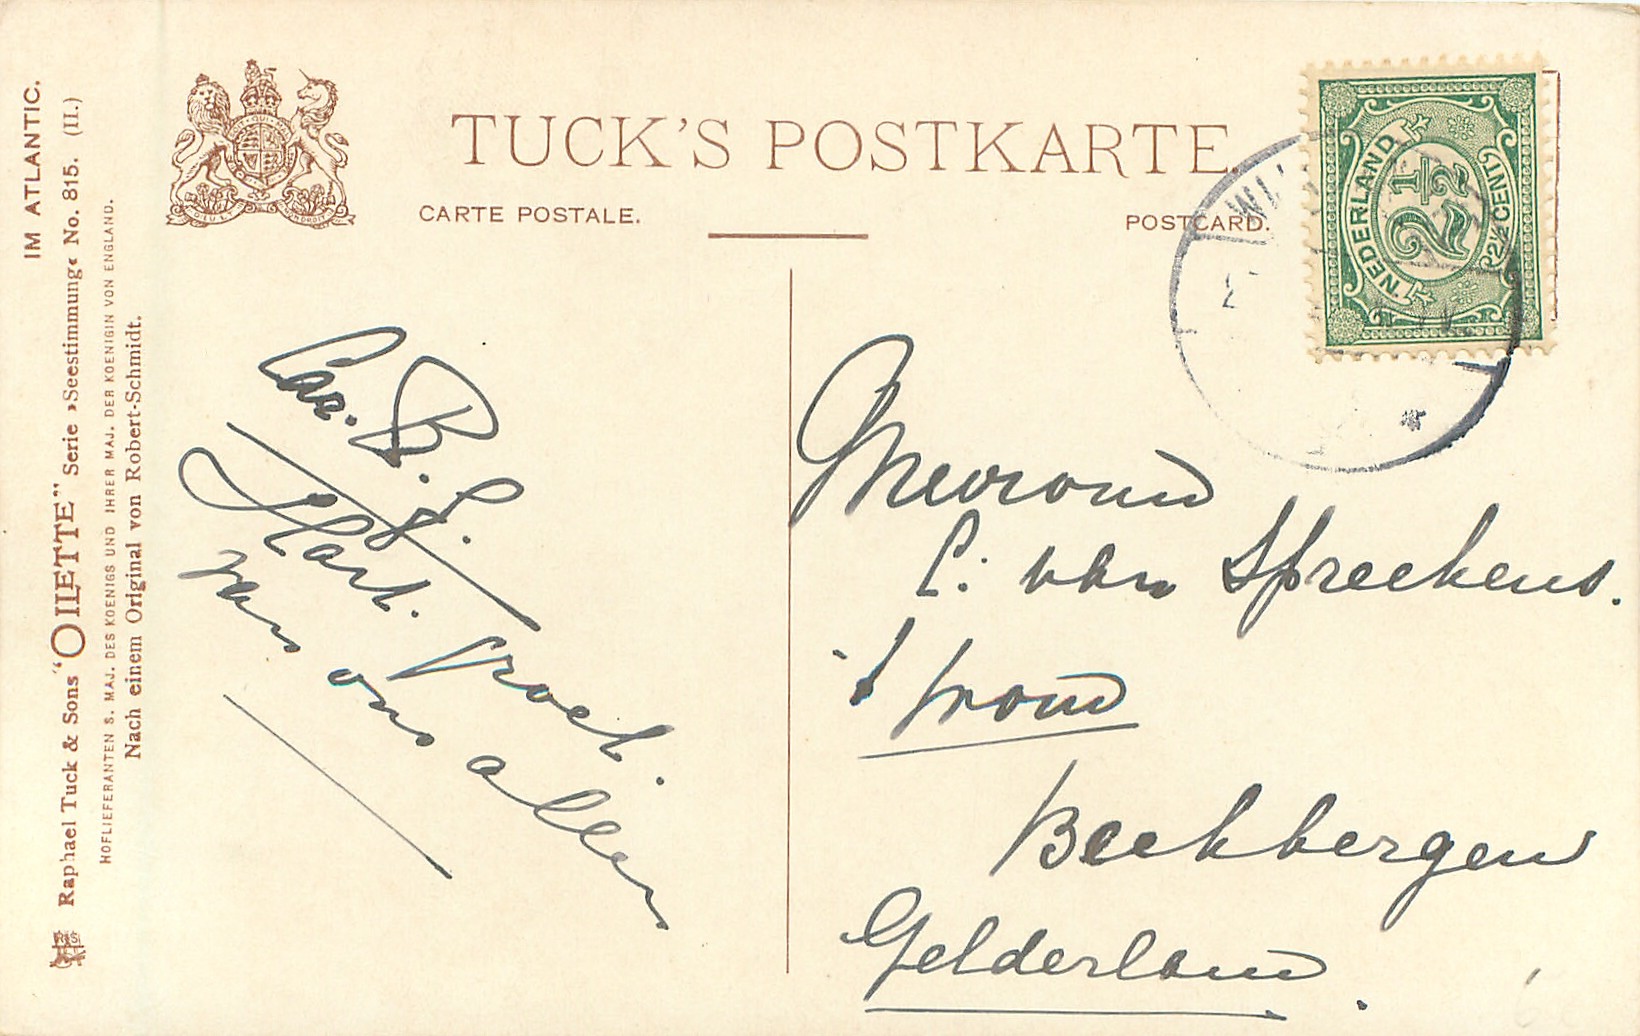 IM ATLANTIC.
Raphael Tuck & Sons "OILETTE" Serie »Seestimmung« No. 815. (II.)
HOFLIEFERANTEN S. MAJ. DES KOENIGS UND IHRER MAJ. DER KOENIGIN VON ENGLAND.
Nach einem Original von Robert-Schmidt.
TUCK'S POSTKARTE.
CARTE POSTALE.
POSTCARD.
NEDERLAND
2½
2½ CENT
Car. B. S.
Hart. groet.
van ons allen
Mevrouw
C. van Spreekens.
Beekbergen
Gelderland.